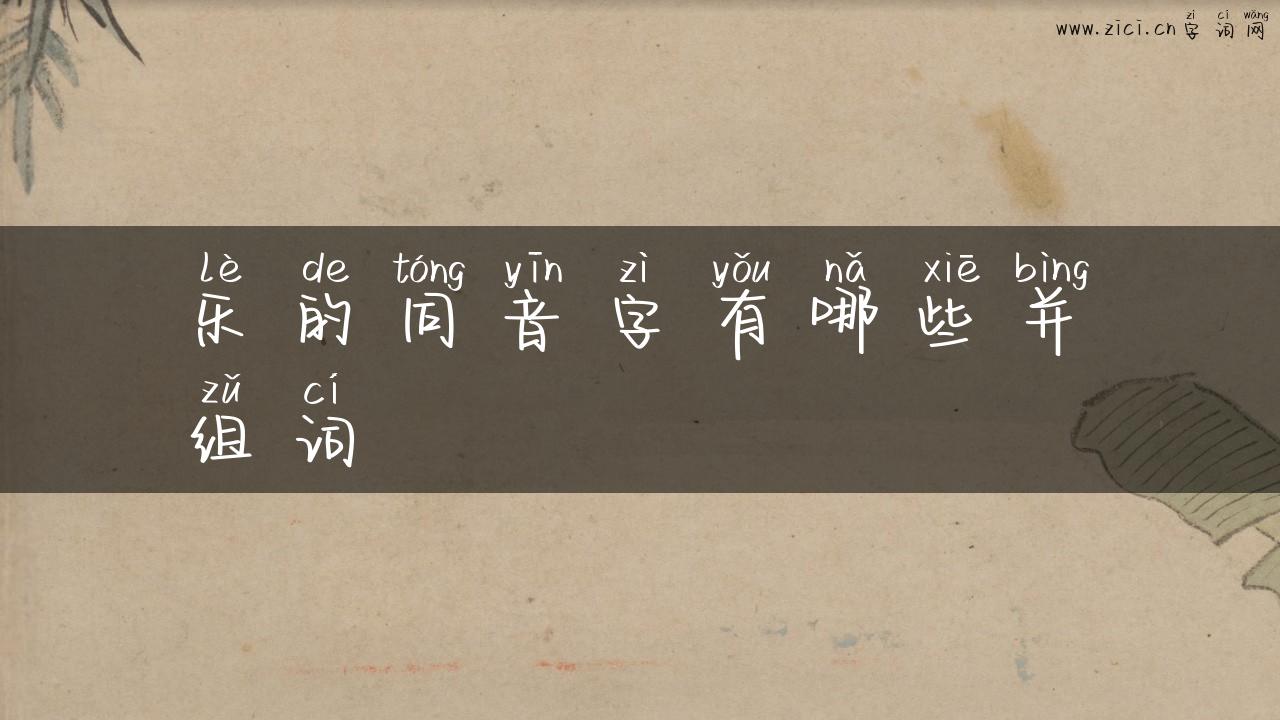 zì cí wǎng
www.zici.cn 字 词 网
lè de tóng yīn zì yǒu nǎ xiē bìng
乐 的 同 音 字 有 哪 些 并
zǔ cí
组 词